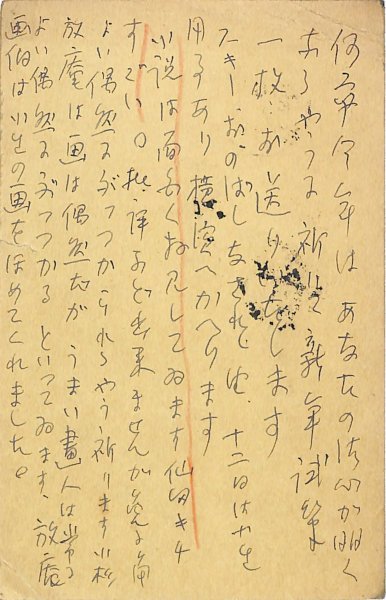 何卒今年はあなたの御心が明く
なるやうに祈りて新年試筆
一枚お送りいたします
スキーおのばし下されとは、十二日は小生
用事あり横濱へかへります
小説は面白くお見してゐます仙田キチ
すごい。批評など出来ませんが
よい偶然にぶつつかられるやう祈ります小杉
放庵は画は偶然だがうまい畫人は常に
よい偶然にぶつつかるといつてゐます、放庵
画伯は小生の画をほめてくれました。